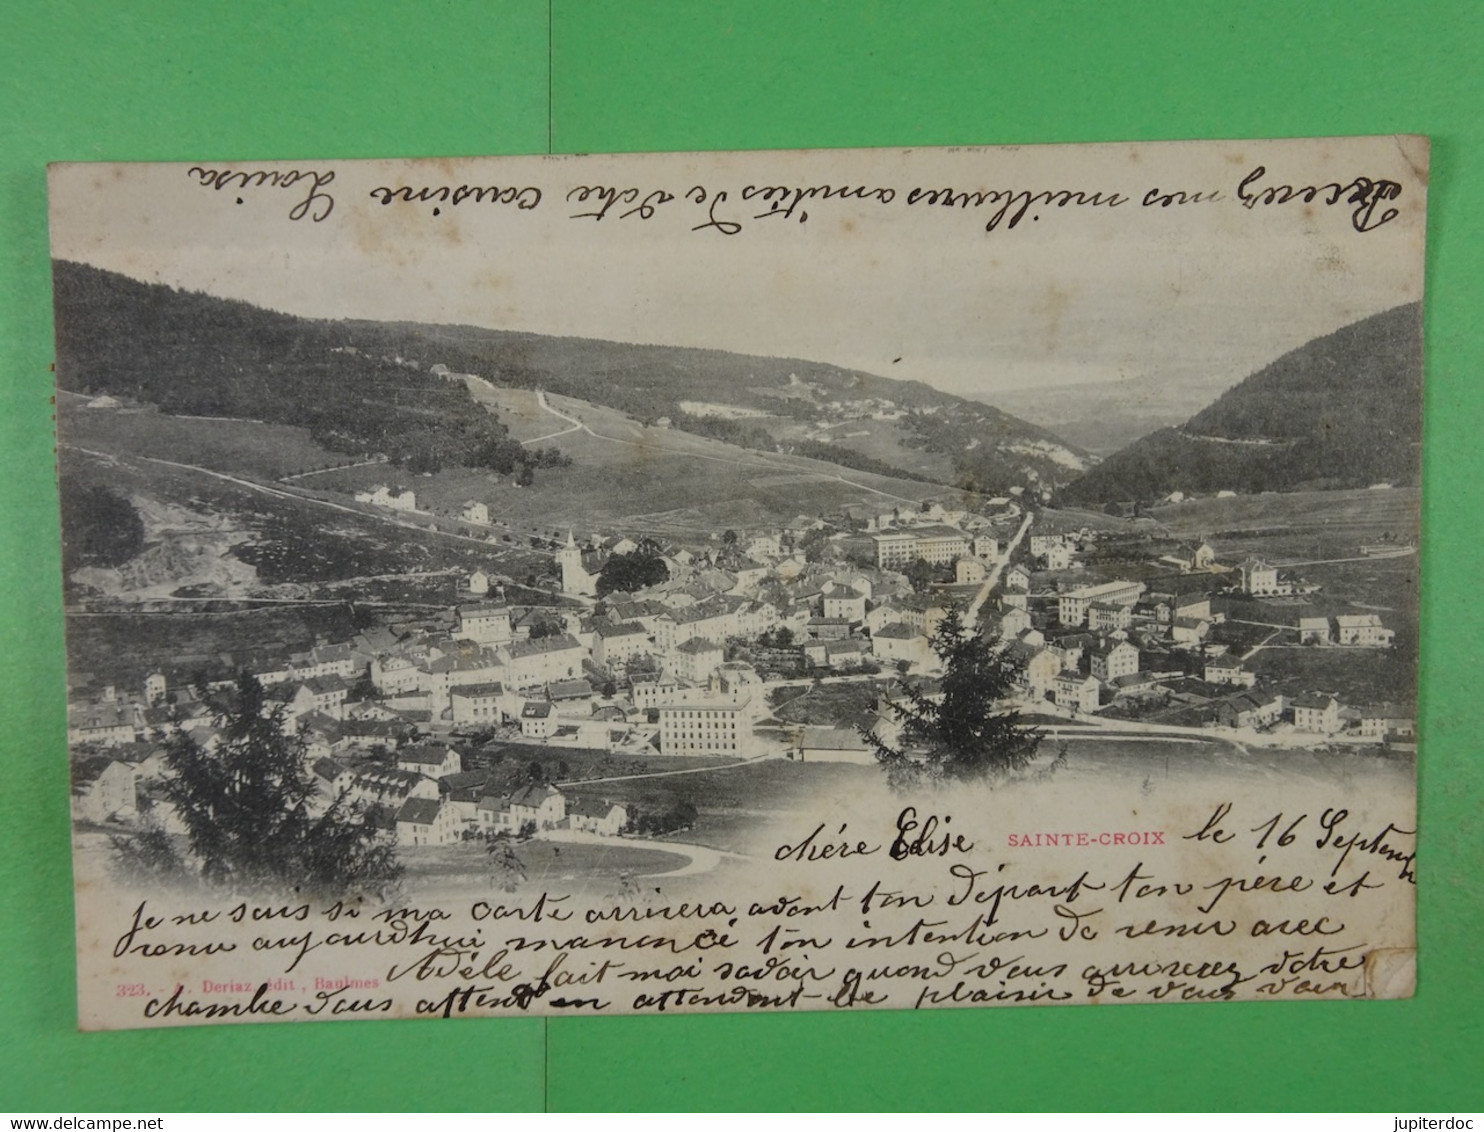 chére Elise SAINTE-CROIX le 16 Septemb
Je ne sais si ma carte arrivera avant ton départ ton père et
venu aujourdhui manoncé ton intention de venir avec
Adéle fait moi savoir quand vous arriverez votre
323. - A. Deriaz, édit., Baulmes
chambre vous attend en attendent le plaisir de vous voir
Recevez mes meilleures amitiés de votre cousine Louisa
delcampe.net
jupiterdoc